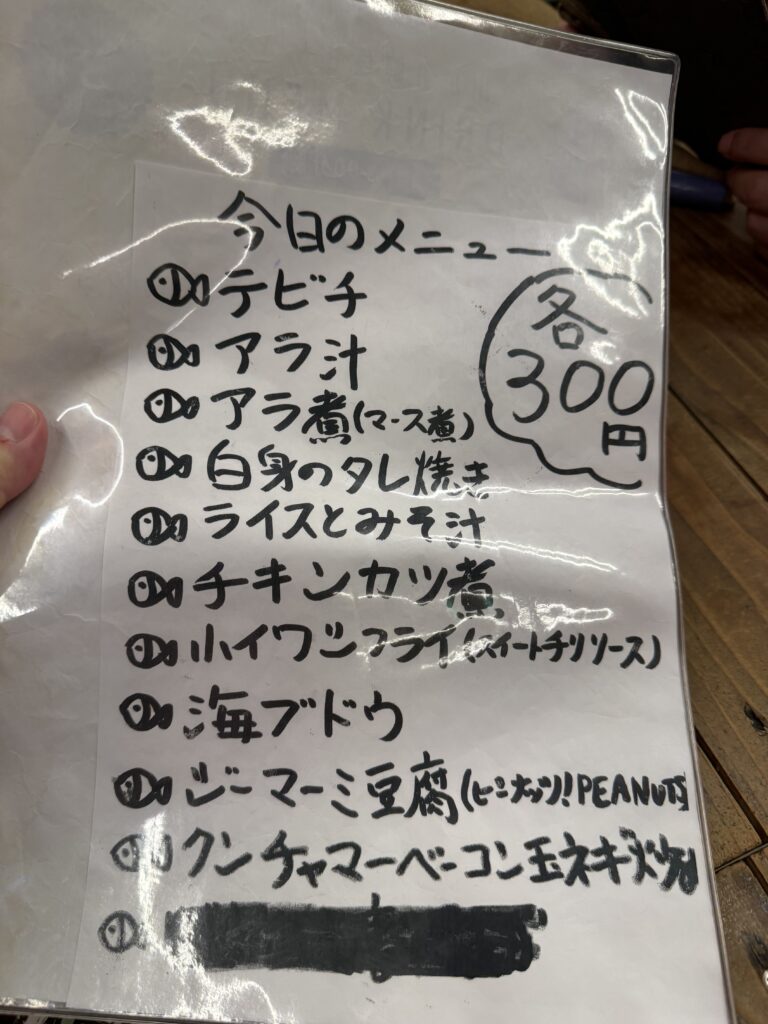 今日のメニュー
各
300
円
テビチ
アラ汁
アラ煮(マース煮)
白身のタレ焼き
ライスとみそ汁
チキンカツ煮
小イワシフライ(スイートチリソース)
海ブドウ
ジーマーミ豆腐(ピーナッツ!PEANUTS
クンチャマーベーコン玉ネギ炒め